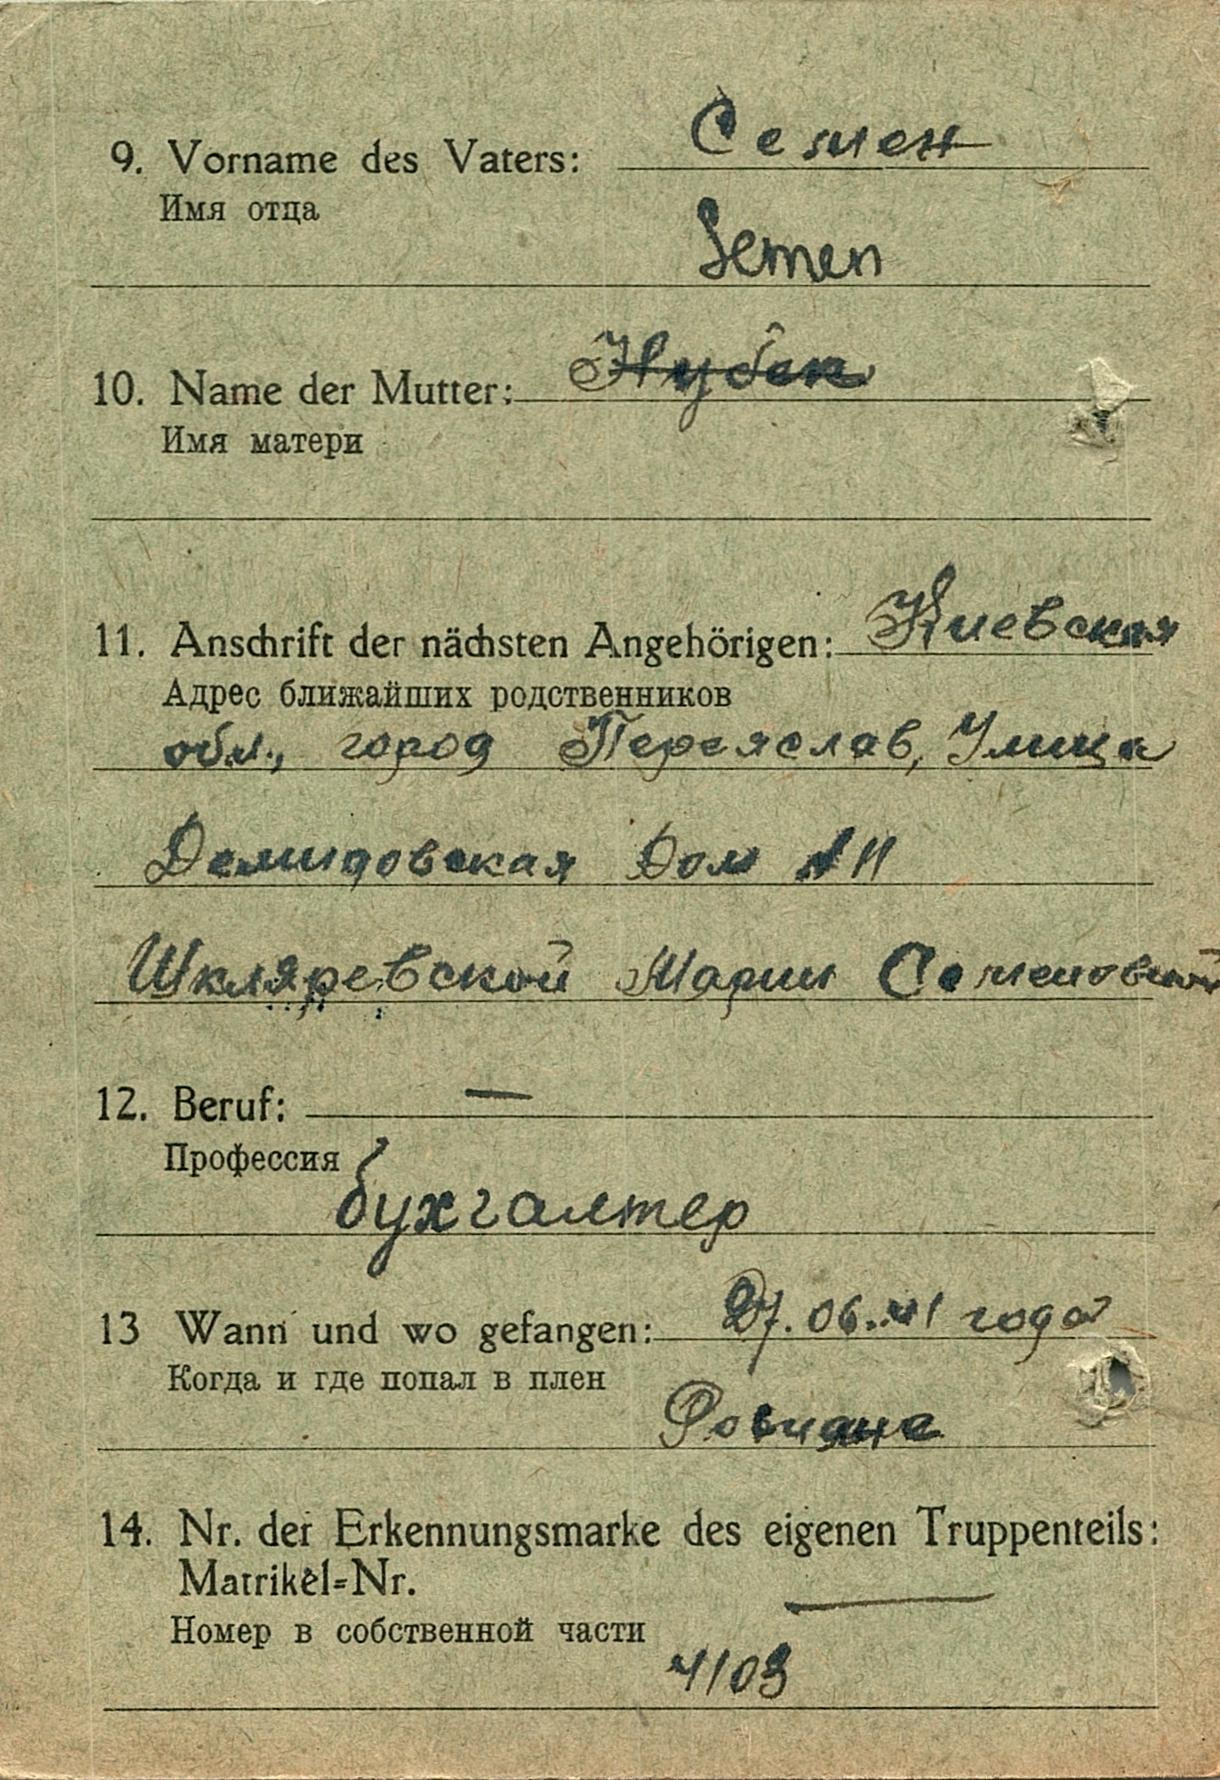 9. Vorname des Vaters: Семен
Имя отца
Semen
10. Name der Mutter:
Имя матери
11. Anschrift der nächsten Angehörigen: Киевская
Адрес ближайших родственников
обл., город Переяслав, Улица
Демидовская Дом № 11
Шкляревской Марии Семеновной
12. Beruf: —
Профессия
бухгалтер
13 Wann und wo gefangen: 27.06.41 года
Когда и где попал в плен
14. Nr. der Erkennungsmarke des eigenen Truppenteils:
Matrikel=Nr. —
Номер в собственной части
4109